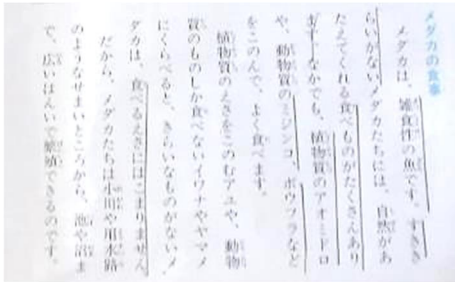 メダカの食事
メダカは、雑食性の魚です。すきき
らいがないメダカたちには、自然があ
たえてくれる食べものがたくさんあり
ます。なかでも、植物質のアオミドロ
や、動物質のミジンコ、ボウフラなど
をこのんで、よく食べます。
植物質のえさをこのむアユや、動物
質のものしか食べないイワナやヤマメ
にくらべると、きらいなものがないメ
ダカは、食べるえさにはこまりません。
だから、メダカたちは小川や用水路
のようなせまいところから、池や沼ま
で、広いはんいで繁殖できるのです。